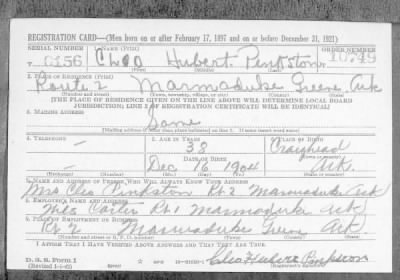 REGISTRATION CARD—(Men born on or after February 17, 1897 and on or before December 31, 1921)
SERIAL NUMBER 1. NAME (Print) ORDER NUMBER
Cleo Hubert Pinkston 10749
(First) (Middle) (Last)
2. PLACE OF RESIDENCE (Print)
Route 2 Marmaduke Greene Ark
(Number and street) (Town, township, village, or city) (County) (State)
[THE PLACE OF RESIDENCE GIVEN ON THE LINE ABOVE WILL DETERMINE LOCAL BOARD
JURISDICTION; LINE 2 OF REGISTRATION CERTIFICATE WILL BE IDENTICAL]
3. MAILING ADDRESS
Same
[Mailing address if other than place indicated on line 2. If same insert word same]
4. TELEPHONE 5. AGE IN YEARS 6. PLACE OF BIRTH
— 38 Craighead
DATE OF BIRTH (Town or county)
Dec 16 1904 Ark.
(Mo.) (Day) (Yr.) (State or country)
7. NAME AND ADDRESS OF PERSON WHO WILL ALWAYS KNOW YOUR ADDRESS
Mrs Cleo Pinkston Rt 2 Marmaduke Ark
8. EMPLOYER'S NAME AND ADDRESS
Carter Rt 1 Marmaduke Ark
9. PLACE OF EMPLOYMENT OR BUSINESS
Rt 2 Marmaduke Greene Ark.
(Number and street or R. F. D. number) (Town) (County) (State)
I AFFIRM THAT I HAVE VERIFIED ABOVE ANSWERS AND THAT THEY ARE TRUE.
D. S. S. Form 1 Cleo Hubert Pinkston
(Revised 1-1-42) (Registrant's signature)